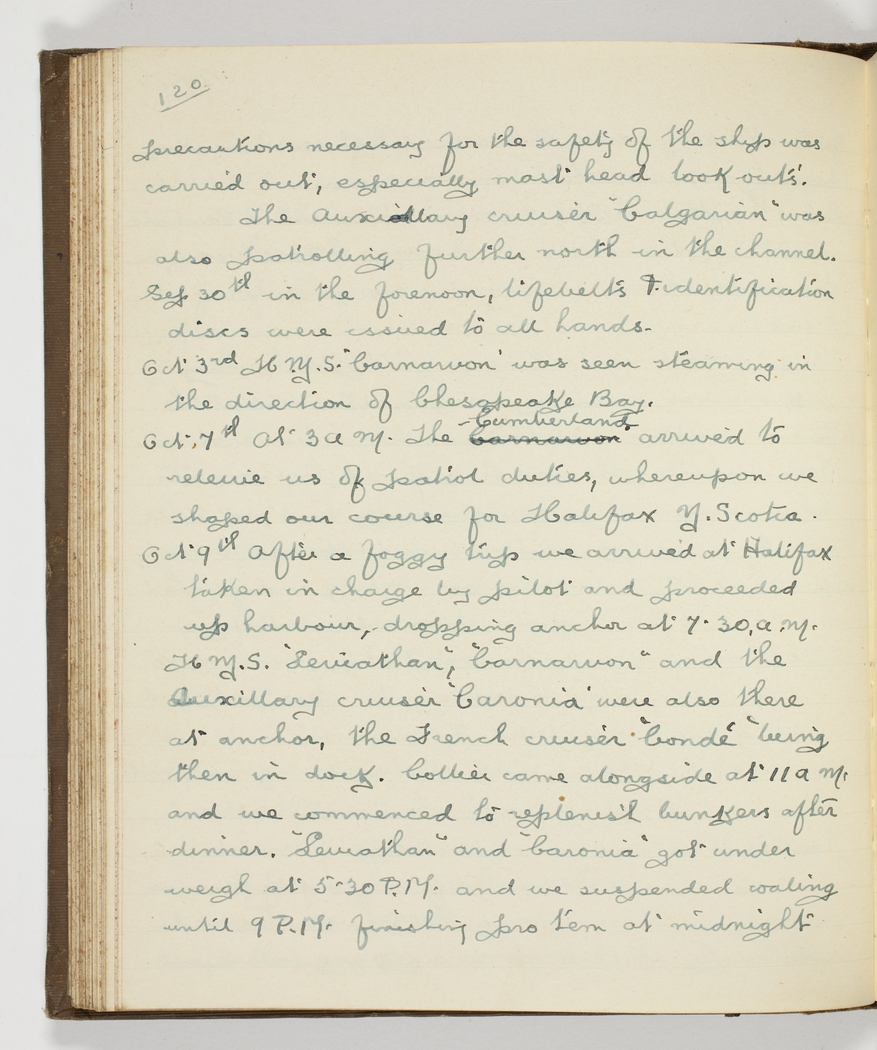 120
precautions necessary for the safety of the ship was
carried out, especially mast head look outs.
The Auxcillary cruiser "Calgarian" was
also patrolling further north in the channel.
Sep 30th in the forenoon, lifebelts & identification
discs were issued to all hands-
Oct 3rd H.M.S. "Carnarvon" was seen steaming in
the direction of Chesapeake Bay.
Cumberland
Oct. 7th At 3 a m. The "Carnarvon" arrived to
releive us of patrol duties, whereupon we
shaped our course for Halifax N. Scotia.
Oct 9th After a foggy trip we arrived at Halifax
taken in charge by pilot and proceeded
up harbour, dropping anchor at 7.30, a.m.
H M.S. "Leviathan", "Carnarvon" and the
Auxcillary cruiser "Caronia" were also there
at anchor, the French cruiser "Condé" being
then in dock. Collier came alongside at 11 a m.
and we commenced to replenish bunkers after
dinner. "Leviathan" and "Caronia" got under
weigh at 5-30 P.M. and we suspended coaling
until 9 P.M. finishing pro tem at midnight